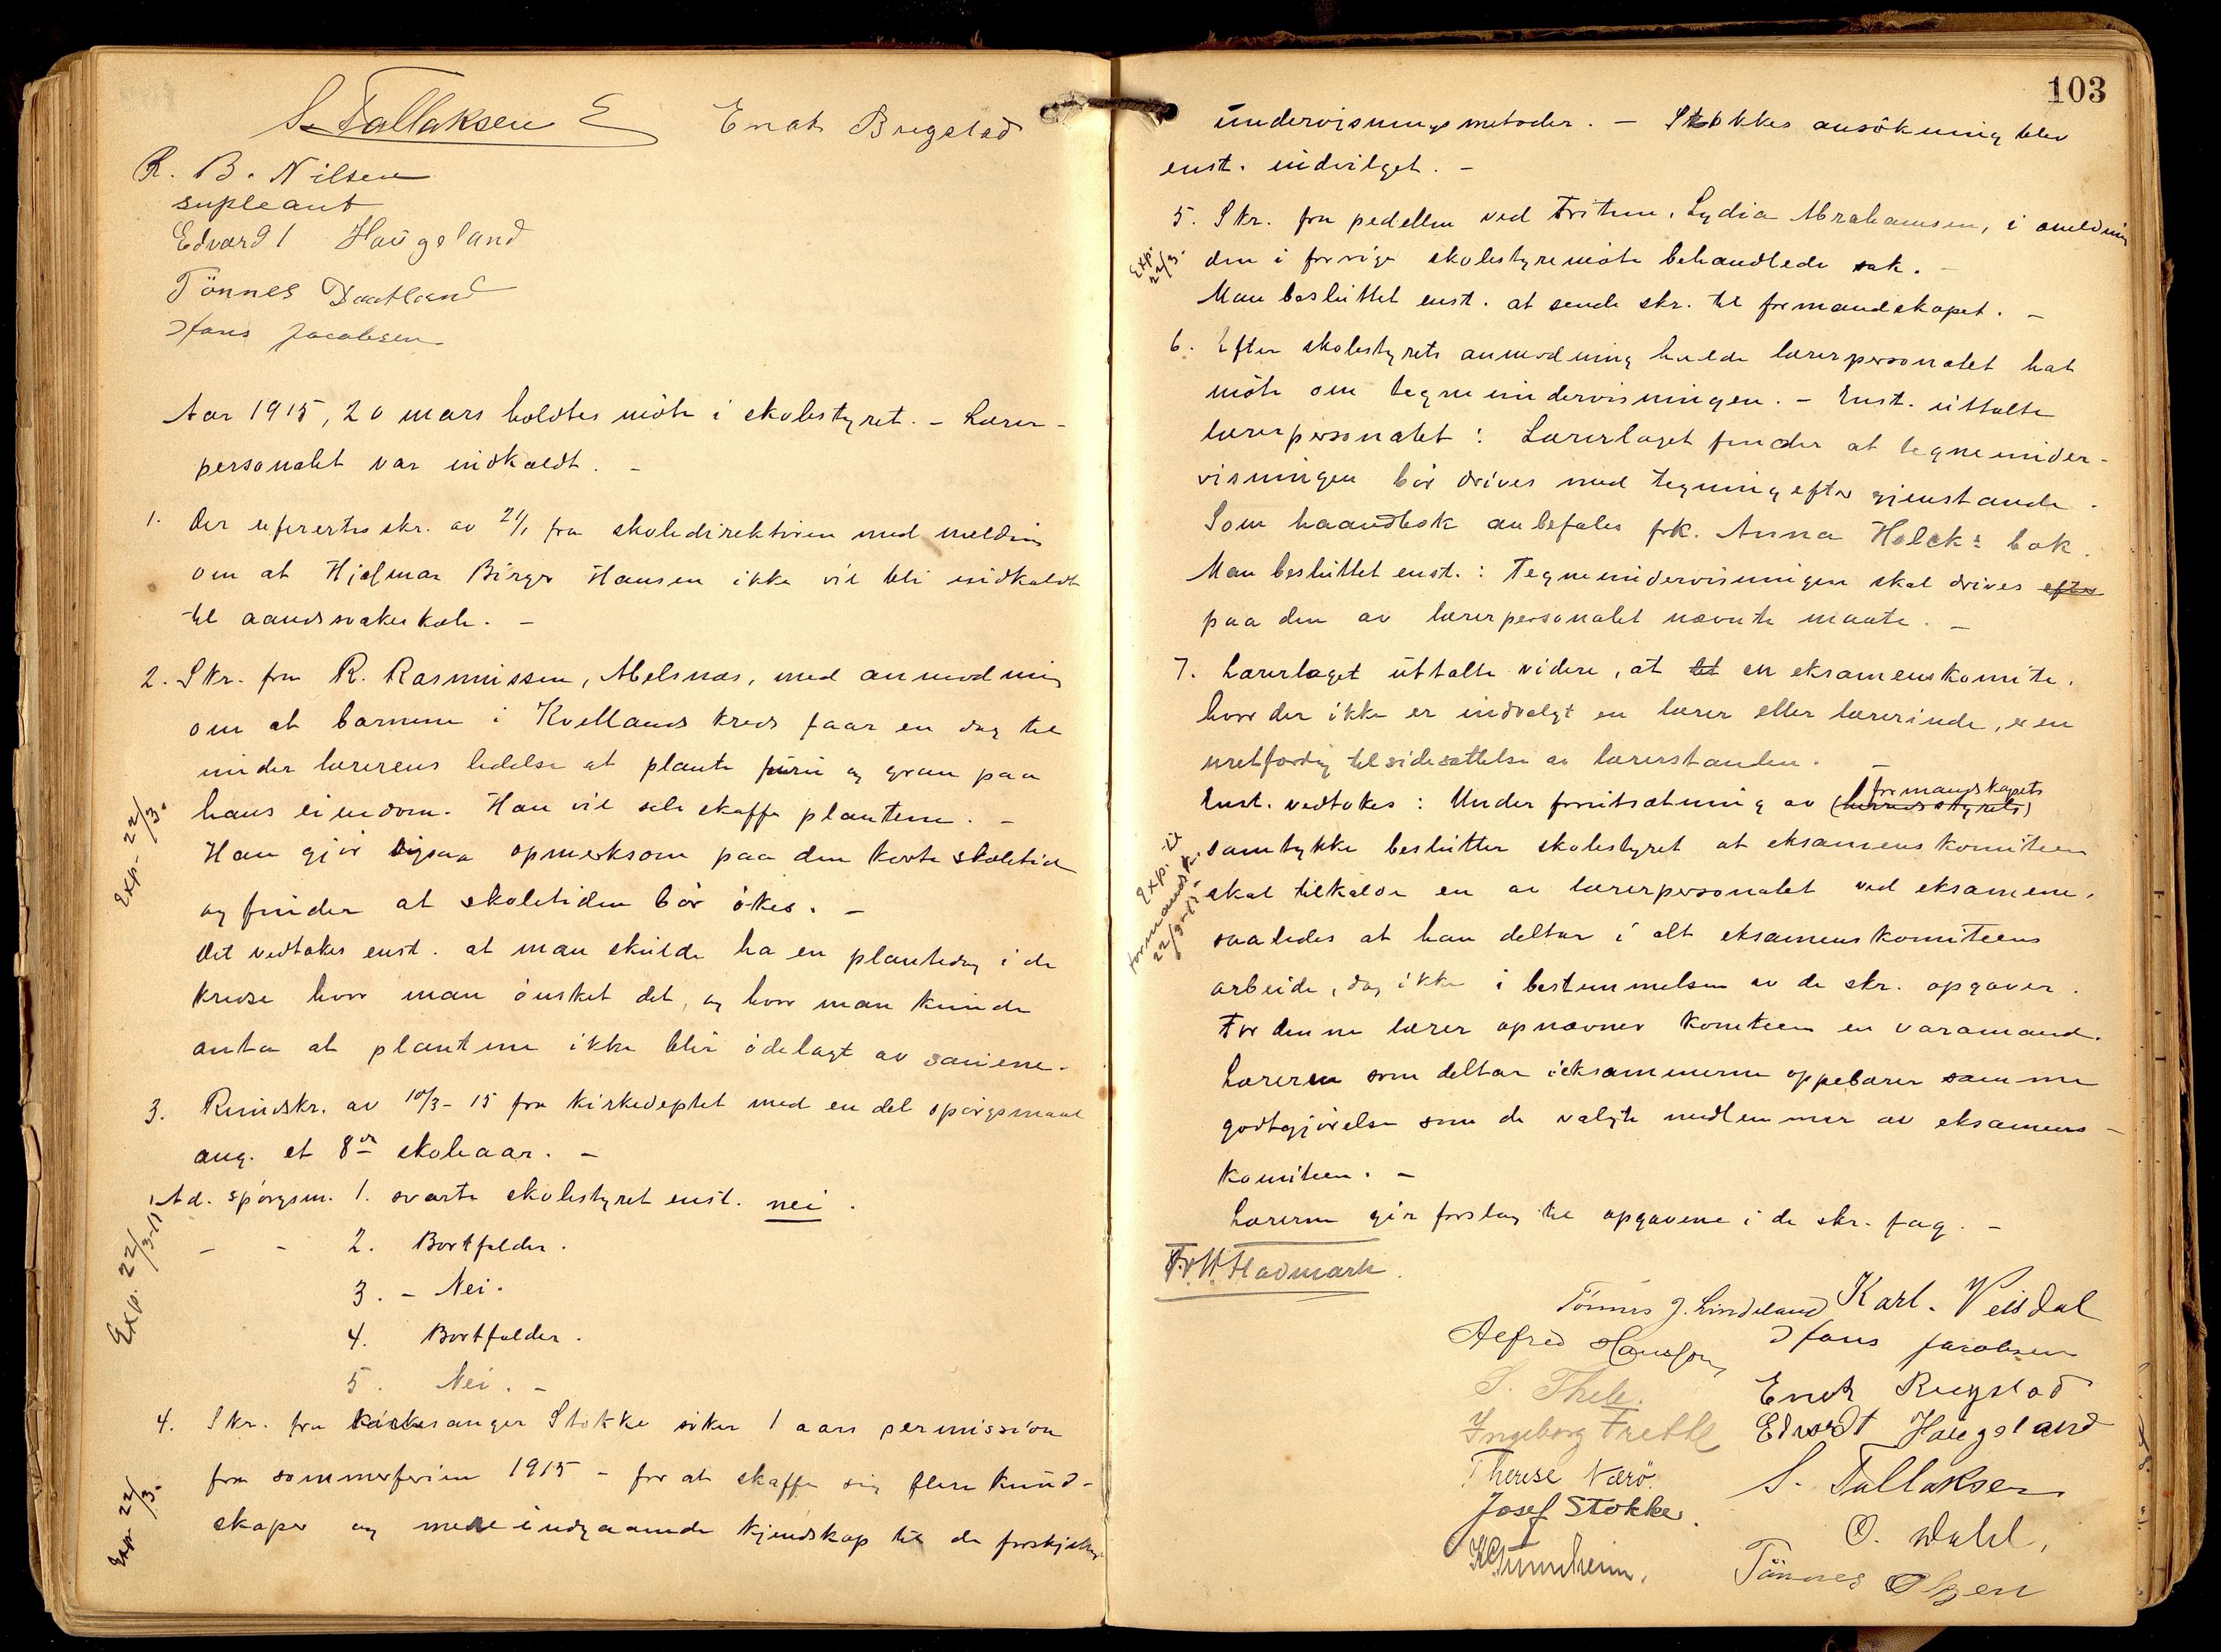 S. Tallaksen Enok Rugstad
R. B. Nilsen
supleant
Edvardt Haugeland
Tönnes Daatland
Hans Jacobsen
Aar 1915, 20 mars holdtes möte i skolestyret. – Lærer-
personalet var indkaldt. –
1. Der refertes skr. av 21/1 fra skoledirektören med melding
om at Hjalmar Birger Hansen ikke vil bli indkaldt
til aandssvakeskole. –
2. Skr. fra R. Rasmussen, Abelsnæs, med anmodning
om at barnene i Kvellands kreds faar en dag til
under lærerens ledelse at plante furu og gran paa
hans eiendom. Han vil selv skaffe plantene. –
Exp. 22/3.
Han gjör ogsaa opmerksom paa den korte skoletid
og finder at skoletiden bör ökes. –
Det vedtokes enst. at man skulde ha en plantedag i de
kredse hvor man önsket det, og hvor man kunde
anta at plantene ikke blir ödelagt av sauene.
3. Rundskr. av 10/3-15 fra Kirkedeptet med en del spörgsmaal
ang. et 8de skoleaar. –
Ad. spörgsm. 1. svarte skolestyret enst. nei.
– - 2. Bortfalder.
Exp. 22/3-15
3. – Nei.
4. Bortfalder.
5. Nei. –
4. Skr. fra kirkesanger Stokke söker 1 aars permission
fra sommerferien 1915 – for at skaffe sig flere kund-
Exp. 22/3.
skaper og mere indgaaende kjendskap til de forskjellige
103
undervisningsmetoder. – Stokkes ansökning blev
enst. indvilget. –
5. Skr. fra pedellen ved Fritun, Lydia Abrahamsen, i anledning
Exp. 22/3.
den i forrige skolestyremöte behandlede sak. –
Man besluttet enst. at sende skr. til formandskapet. –
6. Efter skolestyrets anmodning hadde lærerpersonalet hat
möte om tegneundervisningen. – Enst. uttalte
lærerpersonalet: Lærerlaget finder at tegneunder-
visningen bör drives med tegning efter gjenstande.
Som haandbok anbefales frk. Anna Holcks bok.
Man besluttet enst.: Tegneundervisningen skal drives efter
paa den av lærerpersonalet nævnte maate. –
7. Lærerlaget uttalte videre, at et en eksamenskomite,
hvor der ikke er indvalgt en lærer eller lærerinde, er en
uretfærdig tilsidesættelse av lærerstanden. –
formandskapets
Enst. vedtokes: Under forutsætning av (herredsstyrets)
samtykke beslutter skolestyret at eksamenskomiteen
Exp. til formandsk. 22/3-15
skal tilkalde en av lærerpersonalet ved eksamene,
saaledes at han deltar i alt eksamenskomiteens
arbeide, dog ikke i bestemmelsen av de skr. opgaver.
For denne lærer opnævner komiteen en varamand.
Læreren som deltar i eksammerne oppebærer samme
godtgjörelse som de valgte medlemmer av eksamens-
komiteen. –
Lærerne gir forslag til opgavene i de skr. fag. –
Fr. W. Havmark.
Tönnes J. Lindeland Karl. Veisdal
Alfred Hansson Hans Jacobsen
S. Thele. Enok Rugstad
Ingeborg Frette Edvardt Haugeland
Therese Nærö. S. Tallaksen
Josef Stokke. O. Dahl.
Tönnes Olsen